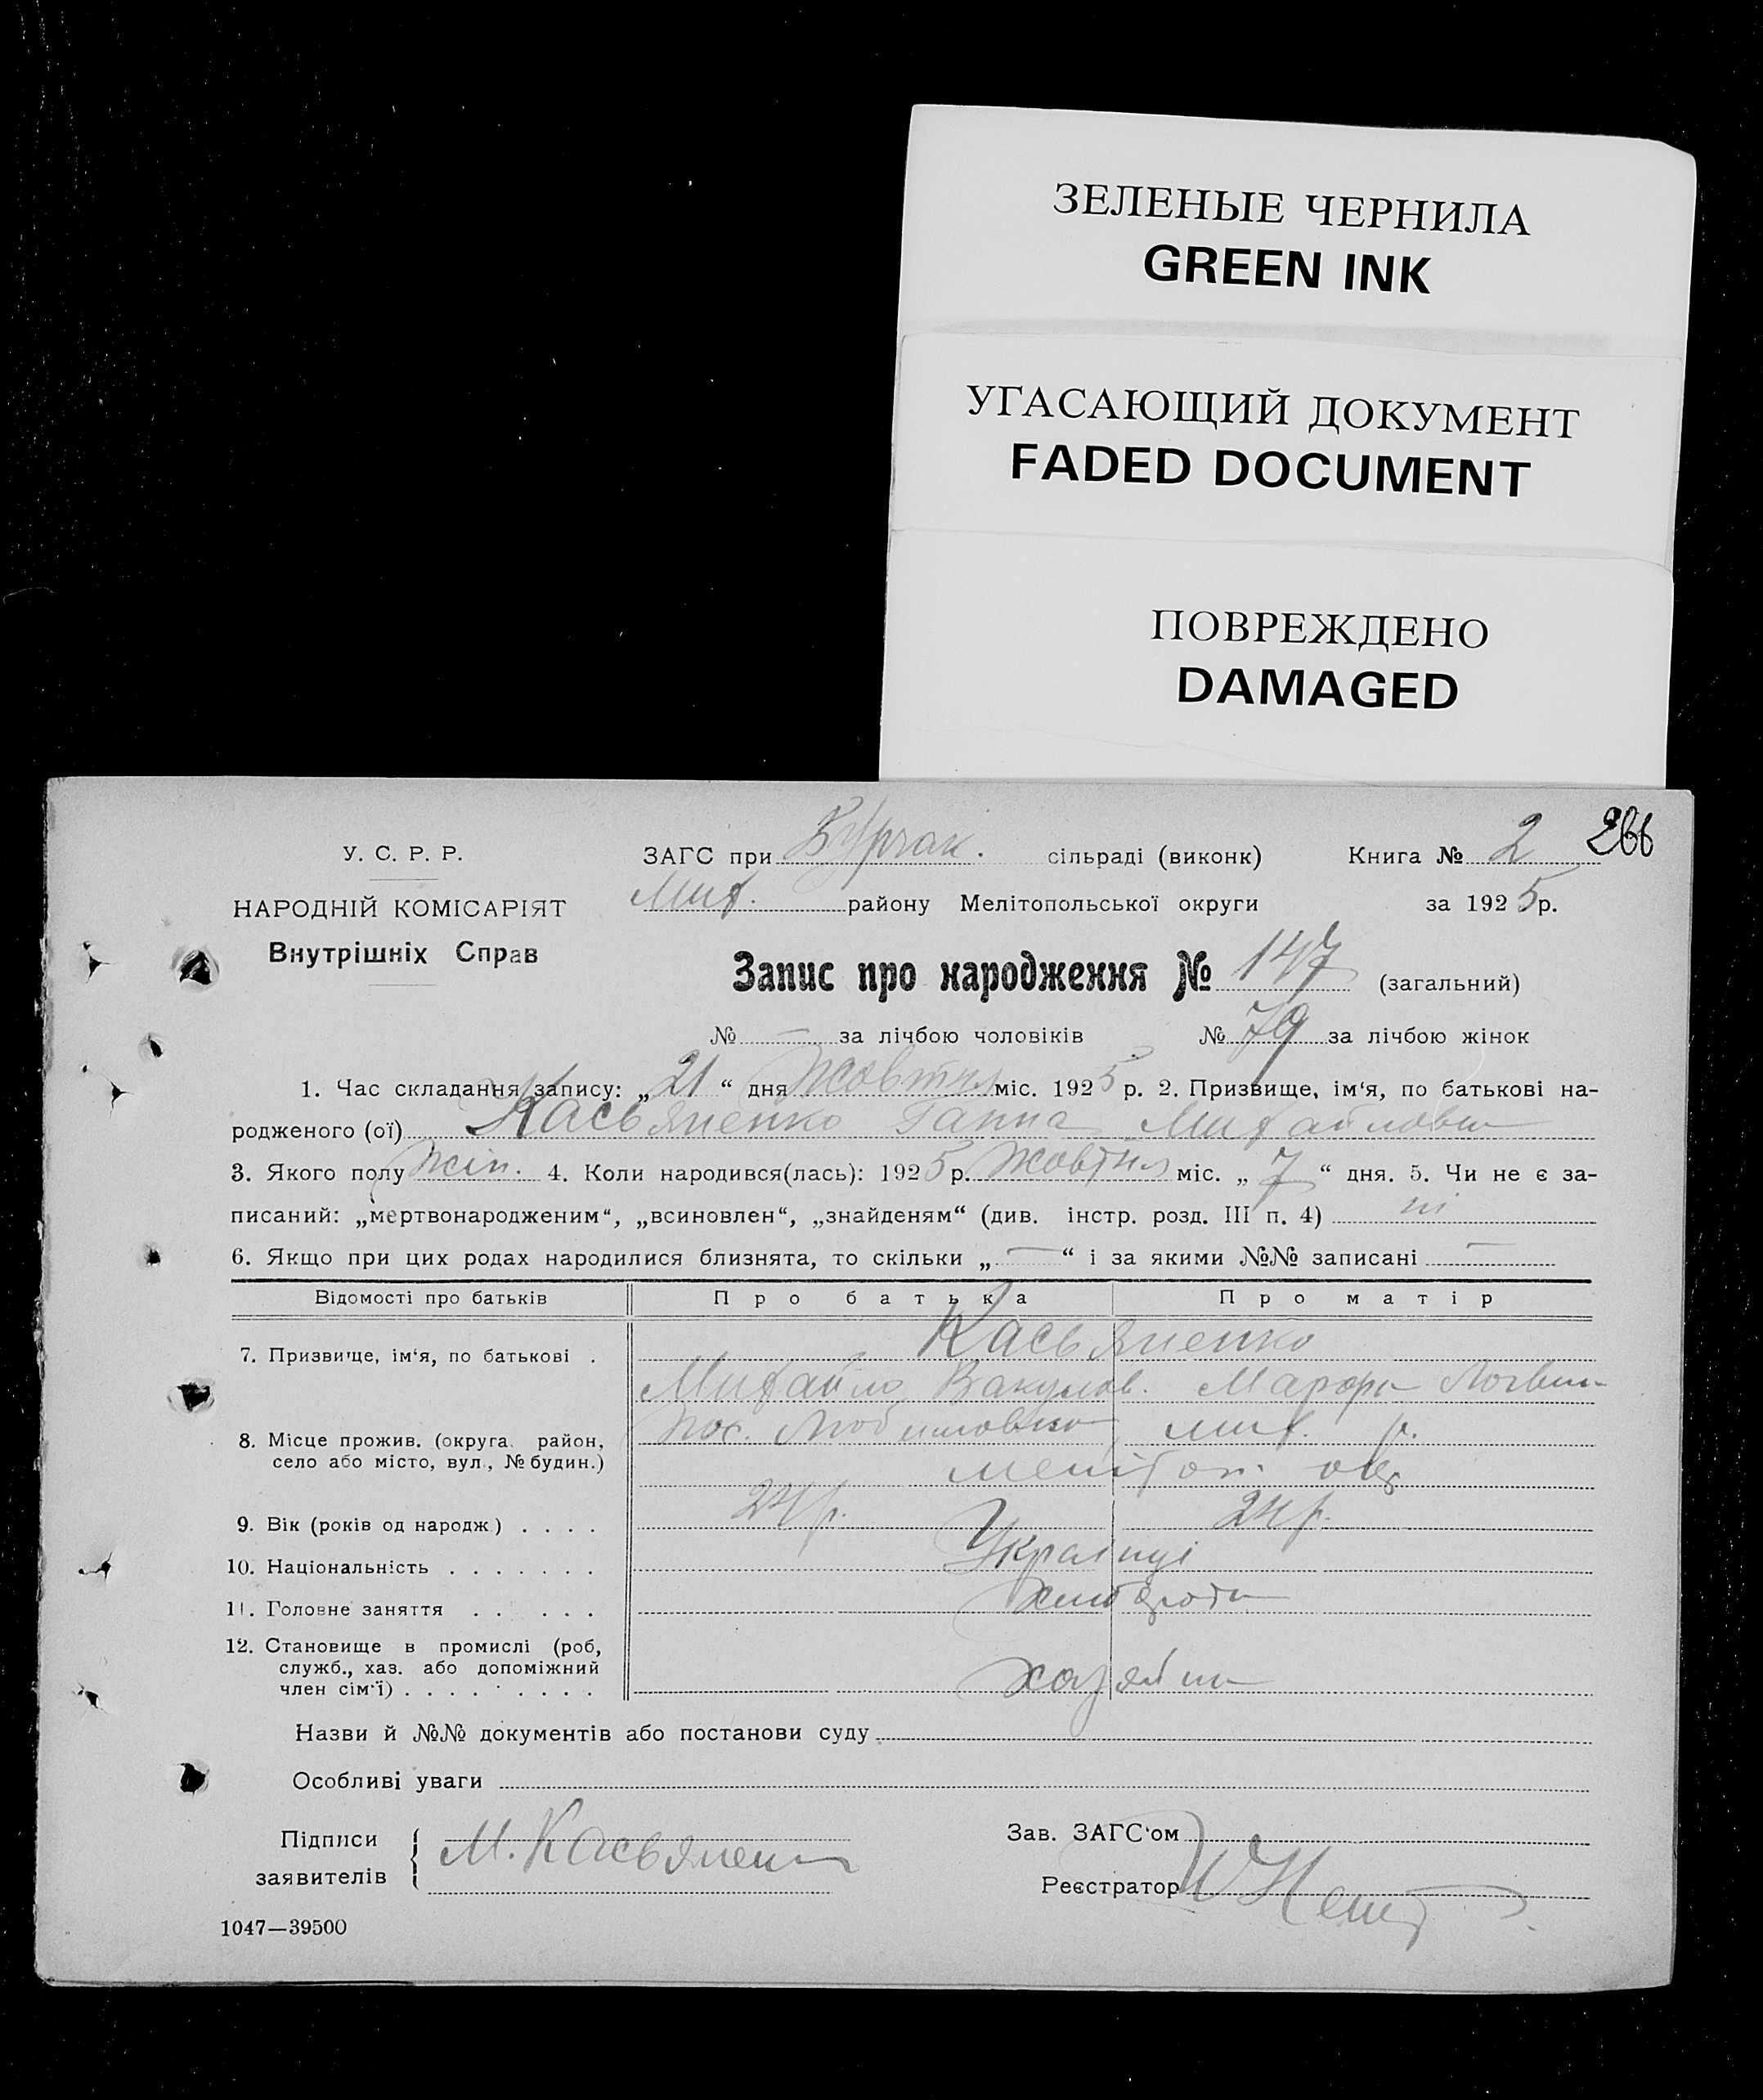 ЗЕЛЕНЫЕ ЧЕРНИЛА
GREEN INK
УГАСАЮЩИЙ ДОКУМЕНТ
FADED DOCUMENT
ПОВРЕЖДЕНО
DAMAGED
266
У. С. Р. Р.
НАРОДНІЙ КОМІСАРІЯТ
Внутрішніх Справ
ЗАГС при Бурчак. сільраді (виконк) Книга № 2
Мих. району Мелітопольської округи за 1925 р.
Запис про народження № 147 (загальний)
№ — за лічбою чоловіків № 79 за лічбою жінок
1. Час складання запису: „21“ дня Жовтня міс. 1925 р. 2. Призвище, ім‘я, по батькові на-
родженого (ої) Касьяненко Ганна Михайловна
3. Якого полу жін. 4. Коли народився(лась): 1925 р. Жовтня міс. „7“ дня. 5. Чи не є за-
писаний: „мертвонародженим“, „всиновлен“, „знайденям“ (див. інстр. розд. III п. 4) ні
6. Якщо при цих родах народилися близнята, то скільки „—“ і за якими №№ записані —
Відомості про батьків Про батька Про матір
7. Призвище, ім‘я, по батькові . Касьяненко
Михайло Вакулов. Марфа
8. Місце прожив. (округа, район,
село або місто, вул., № будин.)
пос. Любимовка мих. р.
меліто п. окр
9. Вік (років од народж.) . . . . 24 р. 24 р.
10. Національність . . . . . . . Українці
11. Головне заняття . . . . . хлібороби
12. Становище в промислі (роб,
служб., хаз. або допоміжний
член сім‘ї) . . . . . . . . . хазяїн
Назви й №№ документів або постанови суду
Особливі уваги
Підписи
заявителів
М. Касьяненко
Зав. ЗАГС‘ом
Реєстратор
1047—39500